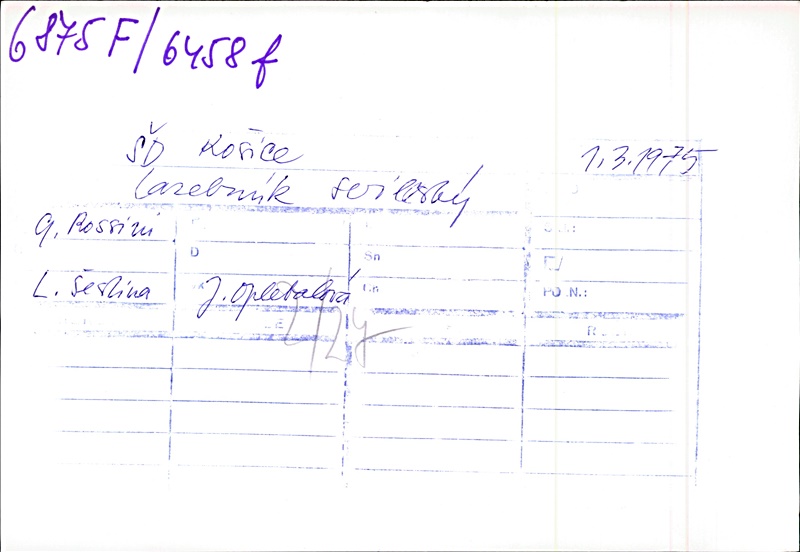 6875 F/6458 f
ŠD Košice 1.3.1975
Lazebník sevilský
G. Rossini
D
Sn
L. Šestina J. Opletalová Cn PO .N.: